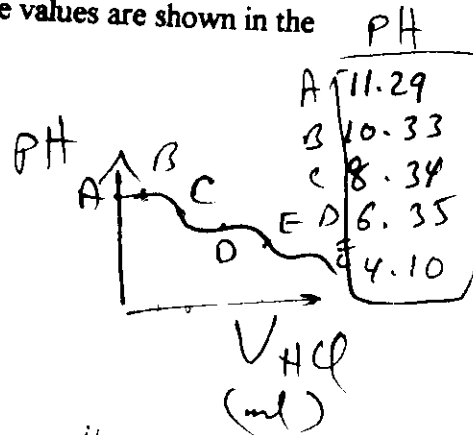 e values are shown in the
PH
A 11.29
B 10.33
C 8.34
D 6.35
E 4.10
PH
A B C D E
V HCl
(ml)